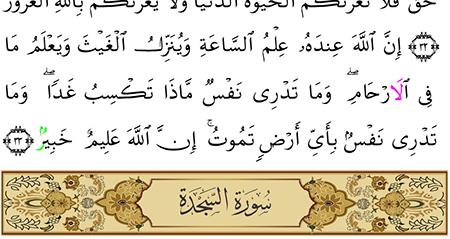 حق فلا تغرنكم الحيوة الدنيا ولا يغرنكم بالله الغرور
٣٢ إِنَّ ٱللَّهَ عِندَهُۥ عِلْمُ ٱلسَّاعَةِ وَيُنَزِّلُ ٱلْغَيْثَ وَيَعْلَمُ مَا
فِى ٱلَارْحَامِۖ وَمَا تَدْرِى نَفْسٌ مَّاذَا تَكْسِبُ غَدًاۖ وَمَا
تَدْرِى نَفْسٌۢ بِأَيِّ أَرْضٍ تَمُوتُۚ إِنَّ ٱللَّهَ عَلِيمٌ خَبِيرٌۢ ٣٣
سُورَةُ السَّجْدَةِ